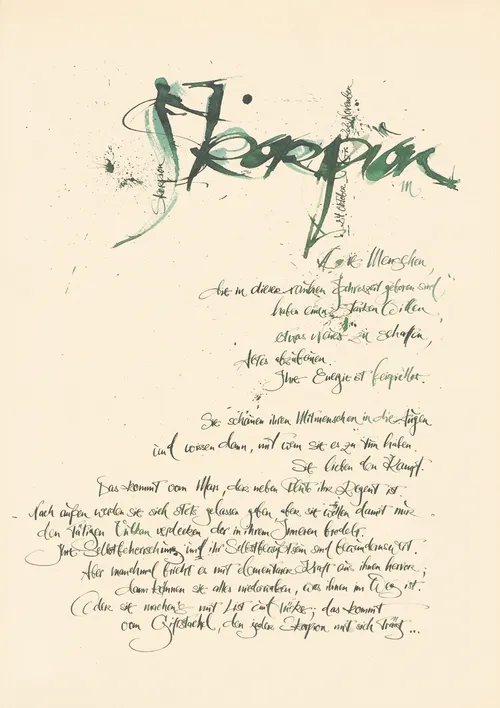 Skorpion
Skorpion
24. Oktober
November
m
Menschen,
die in dieser Jahreszeit geboren sind,
haben einen starken Willen,
etwas Neues zu schaffen,
Ihre Energie ist
Sie schauen ihren Mitmenschen in die Augen
und wissen dann, mit wem sie es zu tun haben.
Sie lieben den Kampf.
Das kommt vom Mars, der neben Pluto ihr Regent ist.
Nach außen werden sie sich stets gelassen geben aber sie wollen damit nur
den Vulkan verdecken der in ihrem Inneren brodelt.
Ihre Selbstbeherrschung und ihr Selbstbewußtsein sind bewundernswert.
Aber manchmal bricht es mit elementarer Kraft aus ihnen hervor;
dann können sie alles, was ihnen im Weg ist.
Oder sie machen's mit List und Tücke; das kommt
vom Giftstachel, den jeder Skorpion mit sich trägt...